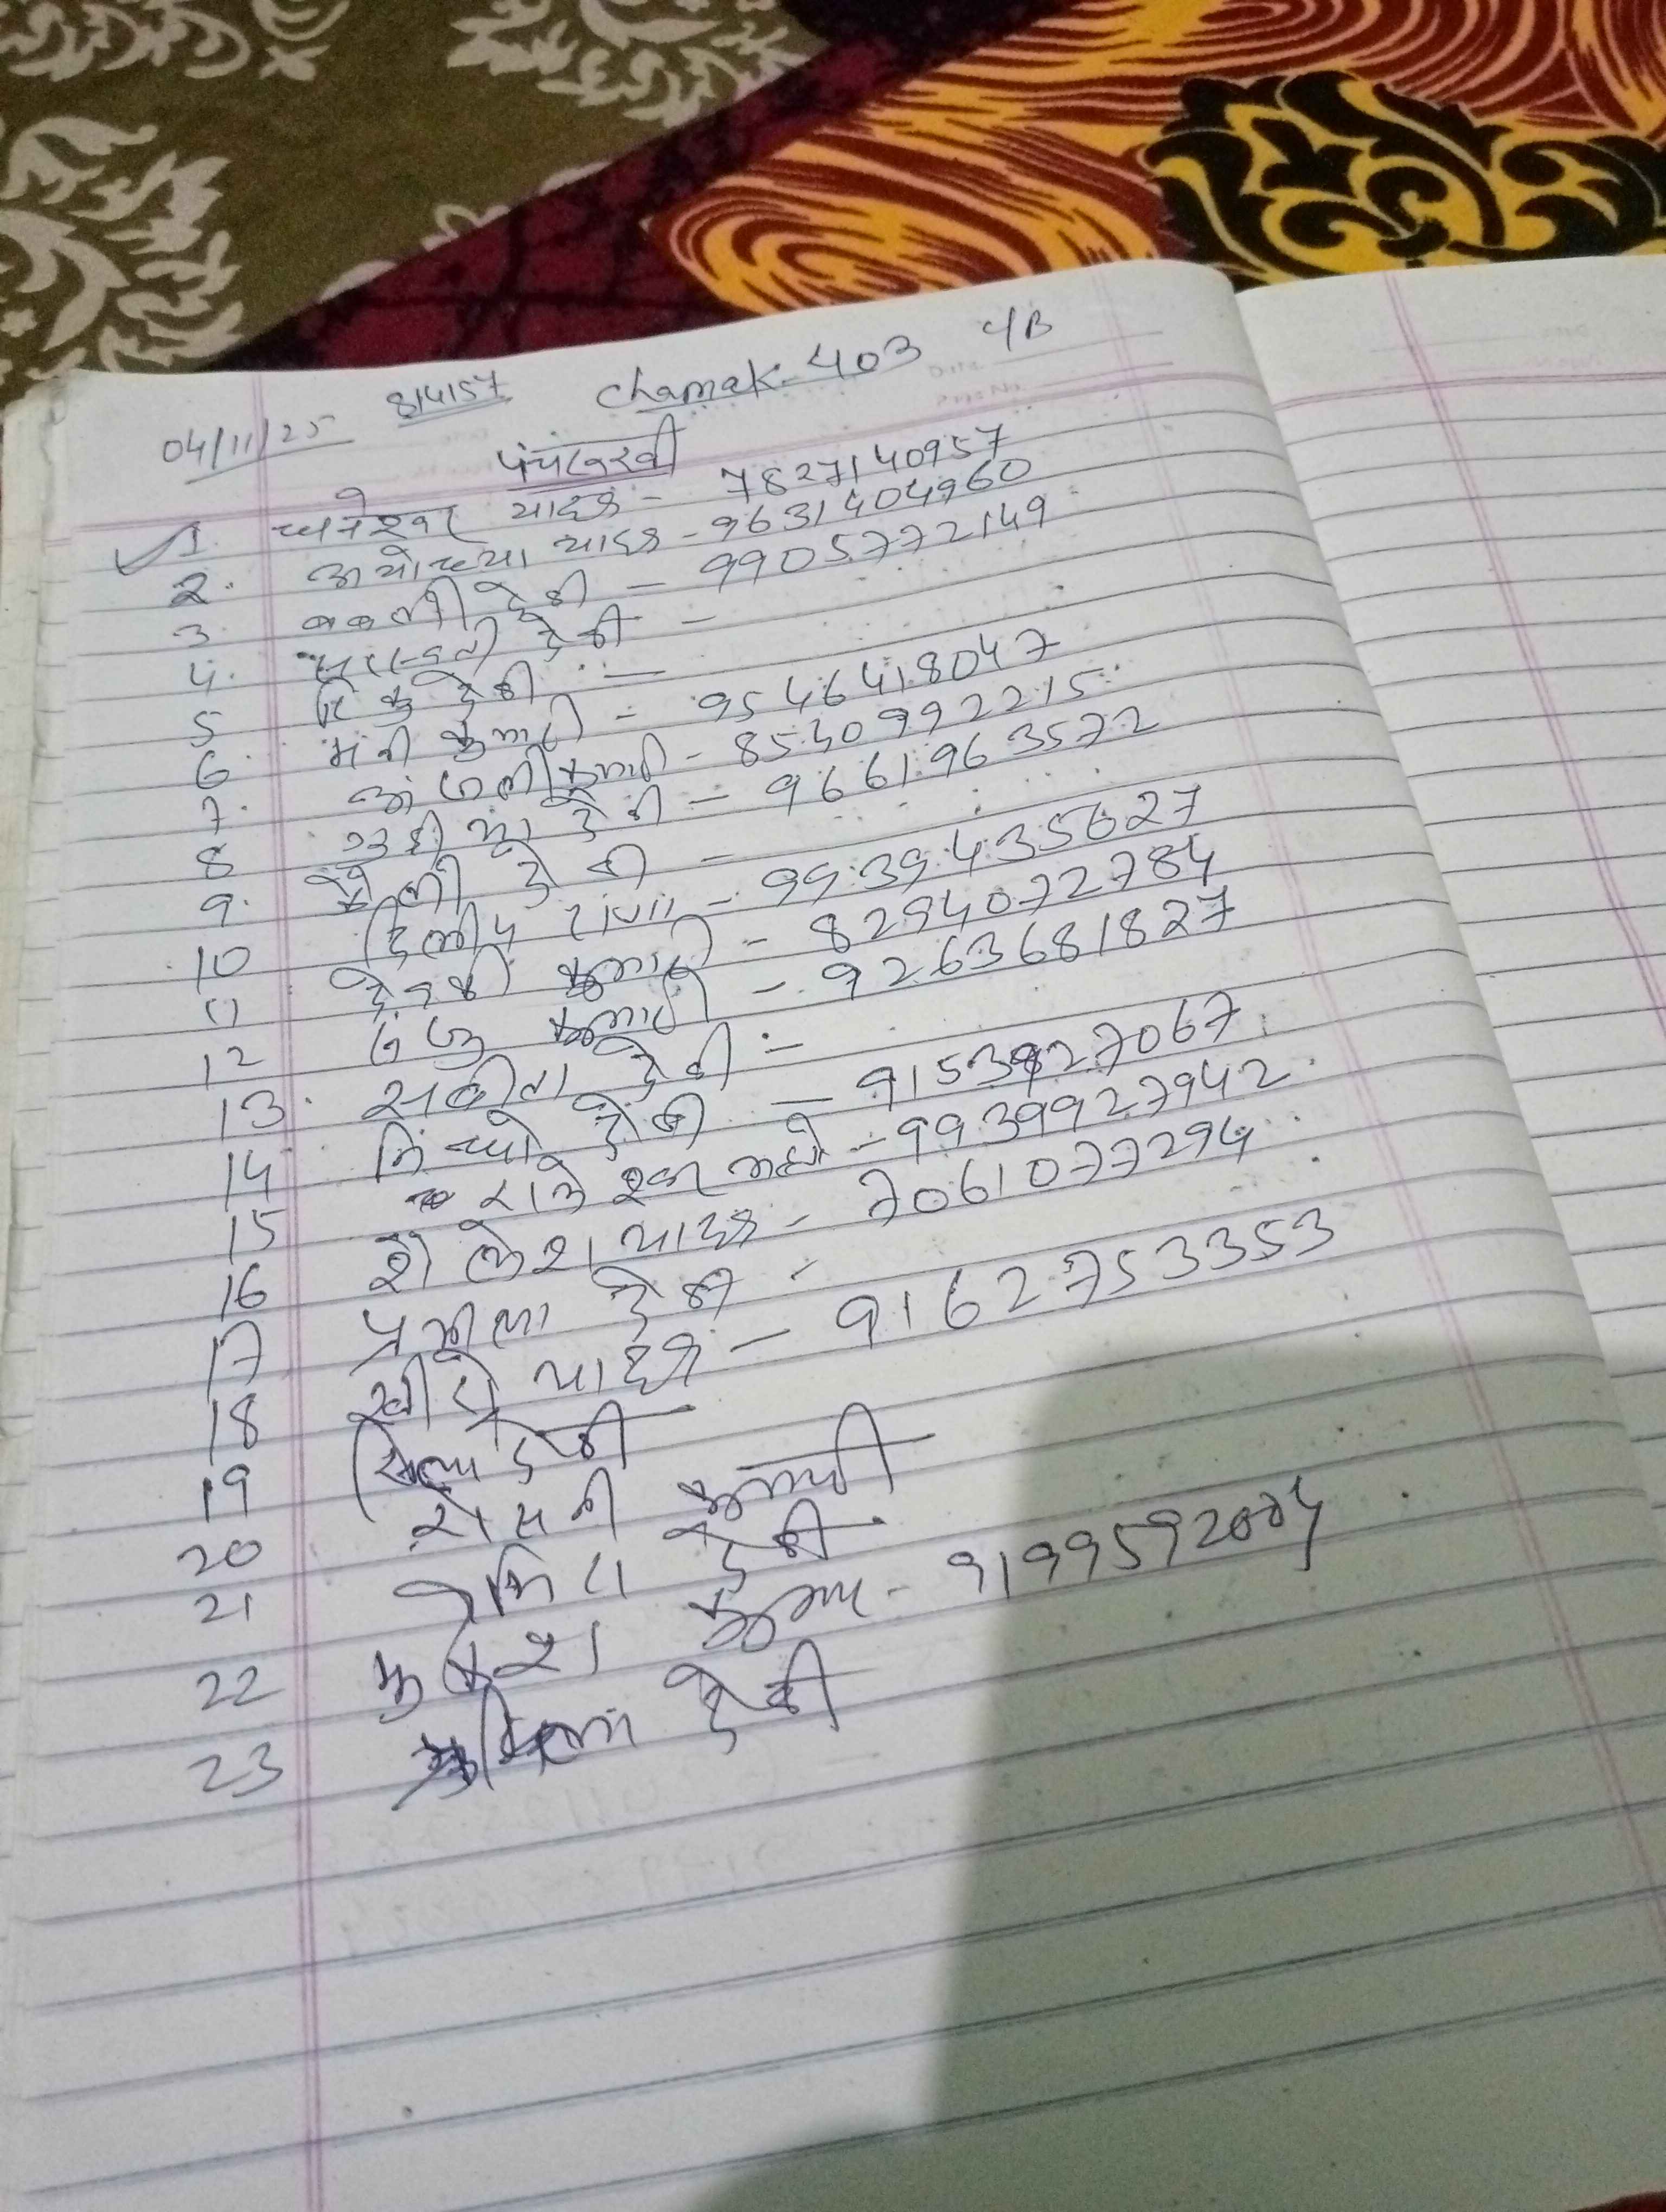 04/11/25 814157 Chamak-403 C/B
पंचरुखी
1. धनेश्वर यादव - 7827140957
2. अयोध्या यादव - 9631404960
3. बबली देवी - 9905772149
4. सरस्वती देवी -
5 रिंकु देवी -
6. मनी कुमारी - 9546418047
7. अंजली कुमारी - 8540992215
8 देवी - 9661963572
9. देवी -
10 दिलीप राणा - 9939435627
11 देवकी कुमारी - 8294072784
12 कुमारी - 9263681827
13. सबीता देवी -
14 देवी - 9153927067
15 राजेश्वर - 9939927942
16 शैलेश यादव - 7061077294
17 प्रमीला देवी -
18 यादव - 9162753353
19 देवी
20 रोसनी कुमारी
21 देवी
22 कुमार - 9199592004
23 देवी